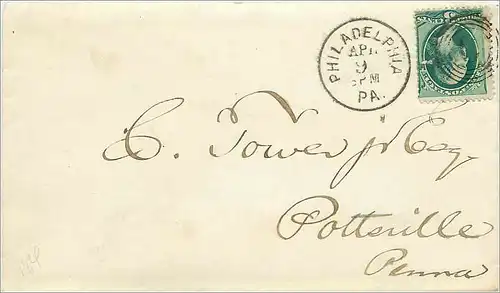 PHILADELPHIA
APR.
9
PM
PA.
C. Tower Jr Esq.
Pottsville
Penna